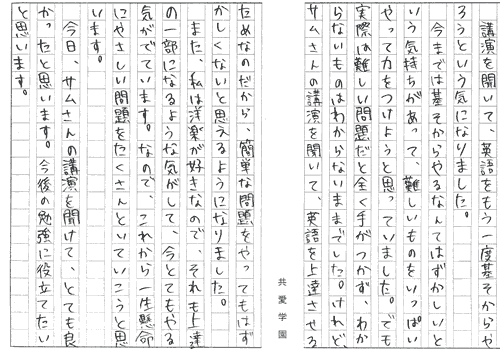 講演を聞いて、英語をもう一度基そからや
ろうという気になりました。
今までは基そからやるなんてはずかしいと
いう気持ちがあって、難しいものをいっぱい
やって力をつけようと思っていました。でも
実際は難しい問題だと全く手がつかず、わか
らないものはわからないままでした。けれど
サムさんの講演を聞いて、英語を上達させる
共愛学園
ためなのだから、簡単な問題をやってもはず
かしくないと思えるようになりました。
また、私は洋楽が好きなので、それも上達
の一部になるような気がして、今とてもやる
気がでています。なので、これから一生懸命
にやさしい問題をたくさんといていこうと思
います。
今日、サムさんの講演を聞けて、とても良
かったと思います。今後の勉強に役立てたい
と思います。